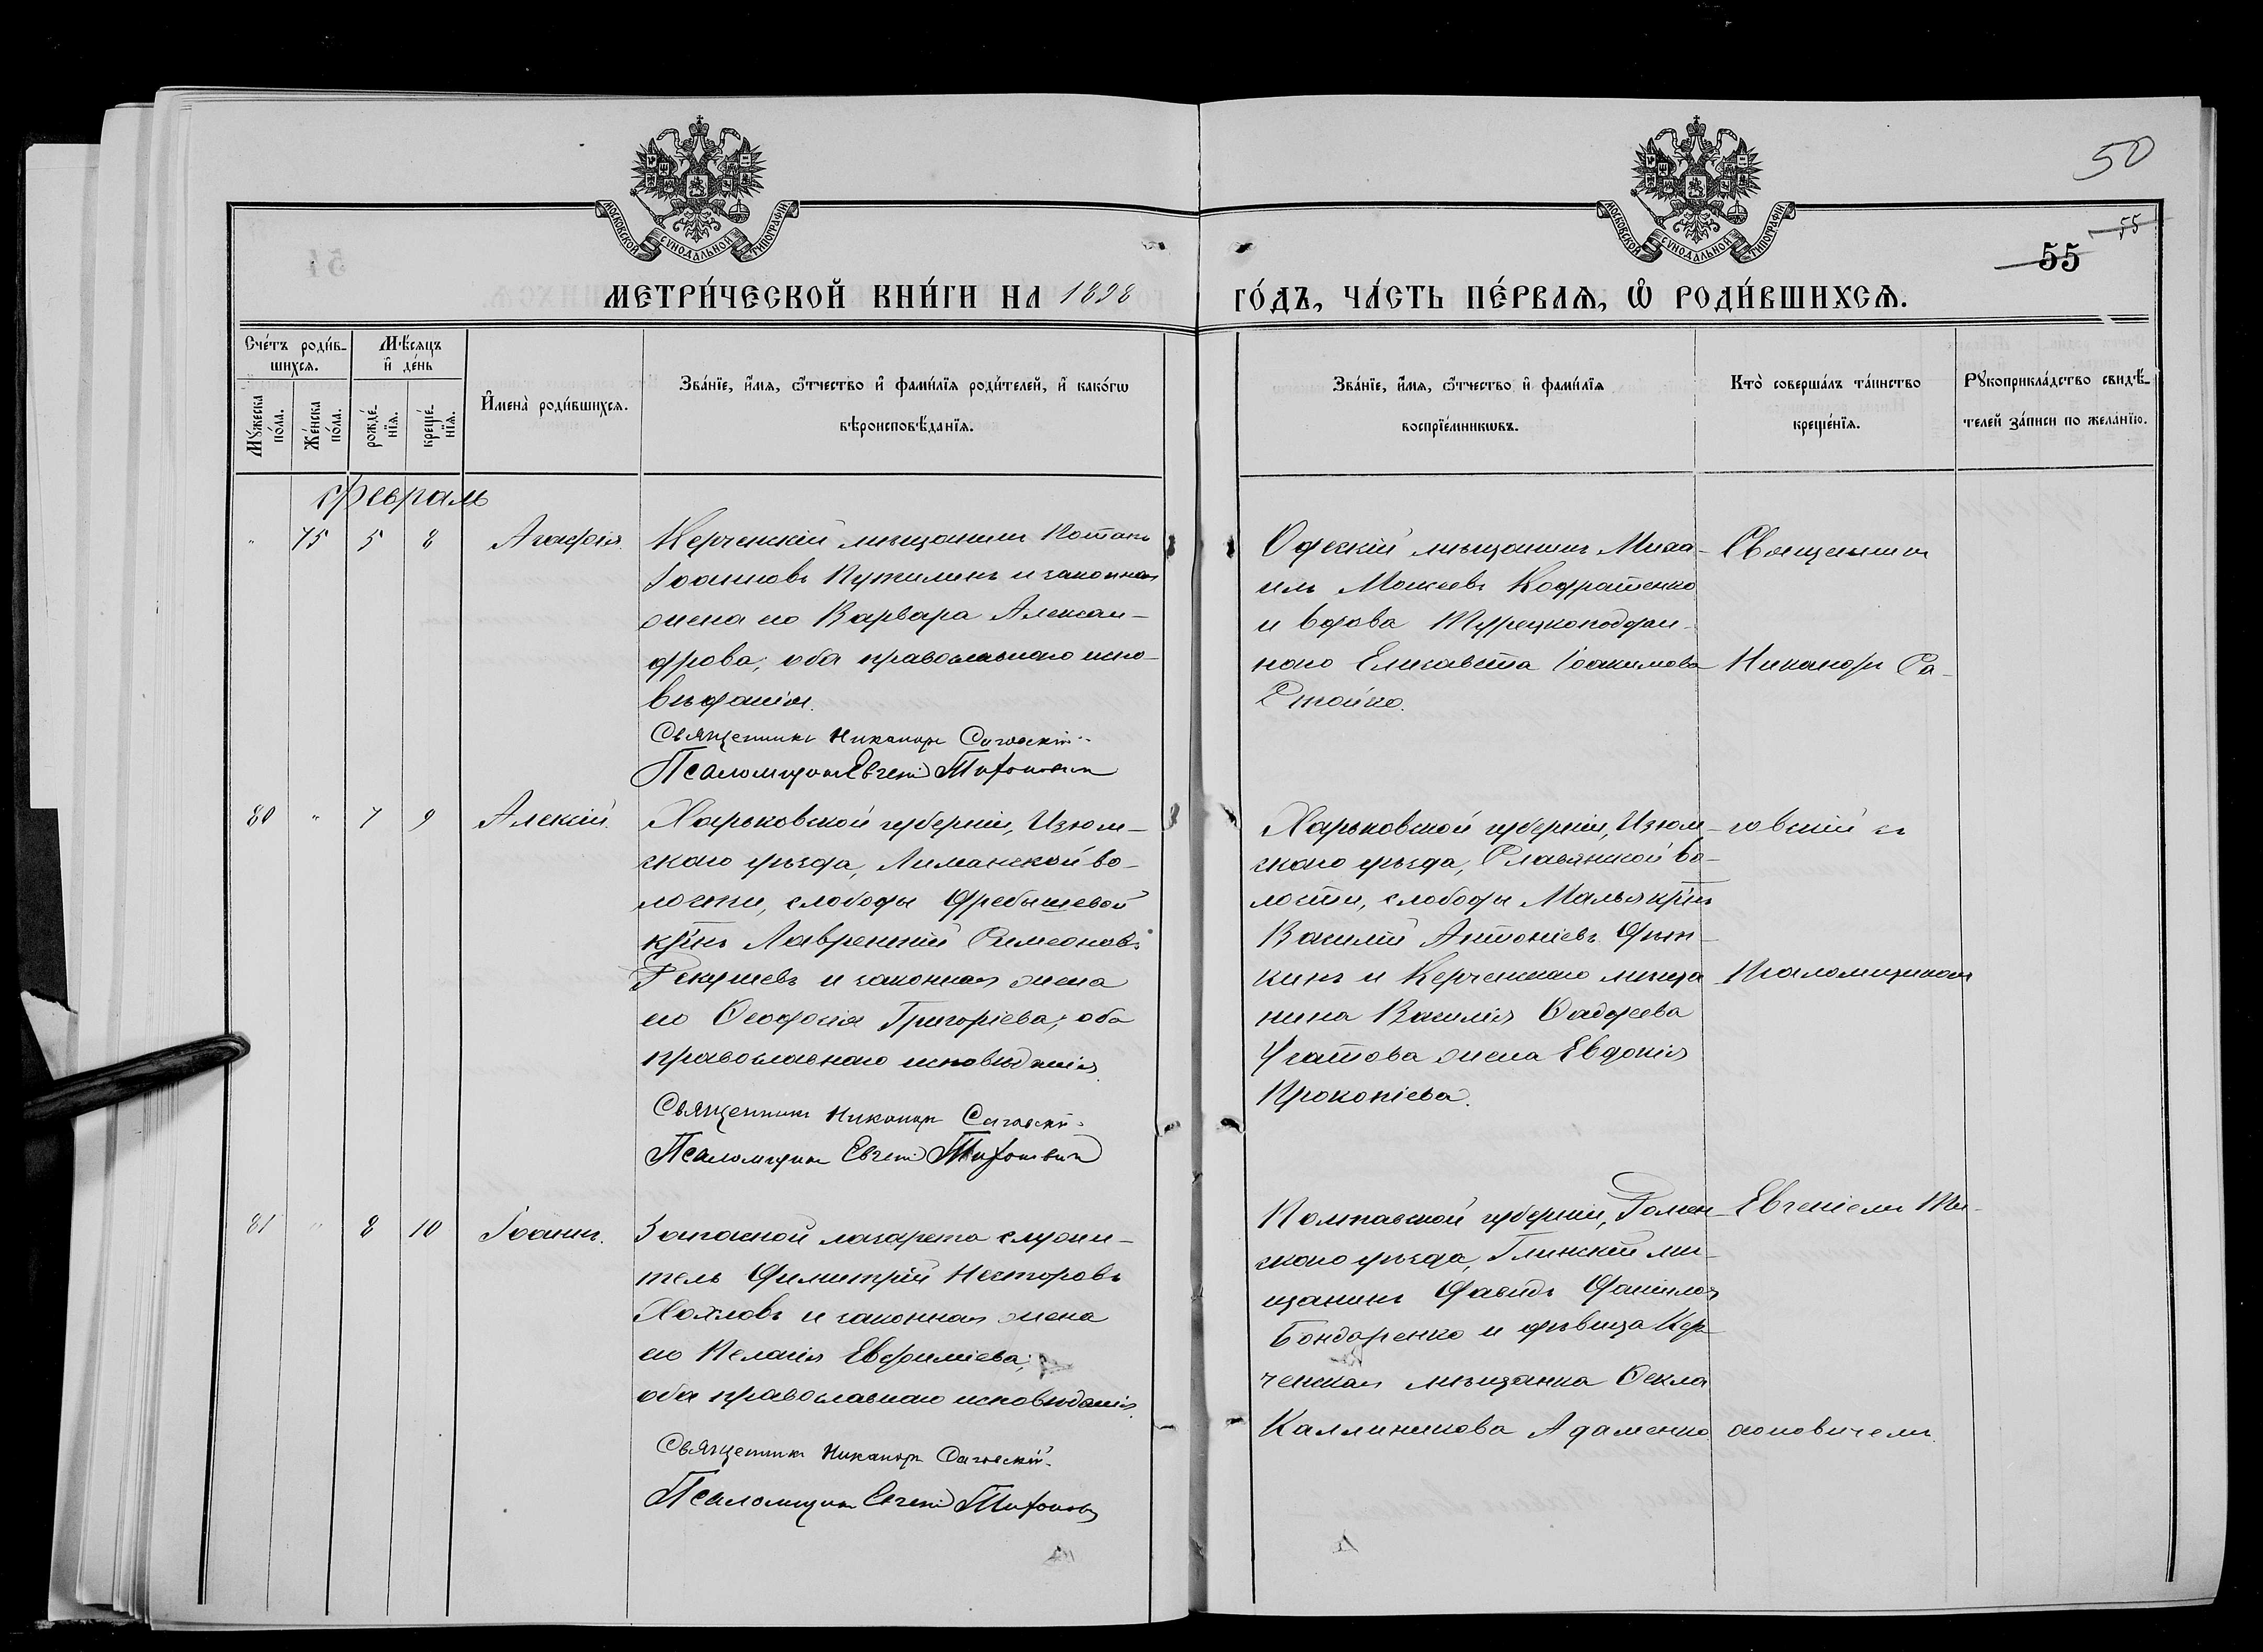 50
МОСКОВСКОЙ СѴНОДАЛЬНОЙ ТИПОГРАФІИ
МОСКОВСКОЙ СѴНОДАЛЬНОЙ ТИПОГРАФІИ
55
55
МЕТРИ́ЧЕСКОЙ КНИ́ГИ НА 1898
ГО́ДЪ, ЧА́СТЬ ПЕ́РВАѦ, Ѡ҆ РОДИ́ВШИХСѦ.
Сче́тъ роди́в-
шихсѧ.
Мꙋ́жеска по́ла.
Же́нска по́ла.
Мѣ́сѧцъ
и҆ де́нь
рожде́-
нїѧ.
креще́-
нїѧ.
И҆мена̀ роди́вшихсѧ.
Зва́нїе, и҆́мѧ, ѻ҆́тчество и҆ фами́лїѧ роди́телей, и҆ како́гѡ
вѣроисповѣ́данїѧ.
Зва́нїе, и҆́мѧ, ѻ҆́тчество и҆ фами́лїѧ
воспрїе́мникѡвъ.
Кто̀ соверша́лъ та́инство
креще́нїѧ.
Рꙋкоприкла́дство свидѣ́-
телей за́писи по жела́нїю.
Февраль
" 75 5 8 Агафія
Керченскій мѣщанинъ Потапъ
Іоанновъ Путилинъ и законная
жена его Варвара Алексан-
дрова; оба православнаго испо-
вѣданія.
Священникъ Никаноръ Саговскій
Псаломщикъ Евгеній Тихоновичъ
Одескій мѣщанинъ Миха-
илъ Моисеевъ Кодратенко
и вдова Турецкоподдан-
наго Елисавета Іоакимова
Стойко.
Священникъ
Никаноръ Са-
80 " 7 9 Алексій
Харьковской губерніи, Изюм-
скаго уѣзда, Лиманской во-
лости, слободы Дребышевой
кр-нъ Лаврентій Симеоновъ
и законная жена
его Ѳеодосія Григоріева; оба
православнаго исповѣданія
Священникъ Никаноръ Саговскій
Псаломщикъ Евгеній Тихоновичъ
Харьковской губерніи, Изюм-
скаго уѣзда, Славянской во-
лости, слободы кр-нъ
Василій Антоніевъ
и Керченскаго мѣща
нина Василія Ѳаддеева
жена Евдокія
Прокопіева.
говскій съ
Псаломщикомъ
81 " 8 10 Іоаннъ.
Запасной лазарета служи-
тель Димитрій Несторовъ
Хохловъ и законная жена
его Пелагія Евфиміева;
оба православнаго исповѣданія
Священникъ Никаноръ Саговскій
Псаломщикъ Евгеній Тихоновъ
Полтавской губерніи, Ромен-
скаго уѣзда, Глинскій мѣ-
щанинъ Давидъ Даніилов
Бондаренко и дѣвица Кер-
ченская мѣщанка Ѳекла
Каллиникова Адаменко
Евгеніемъ Ти-
хоновичемъ